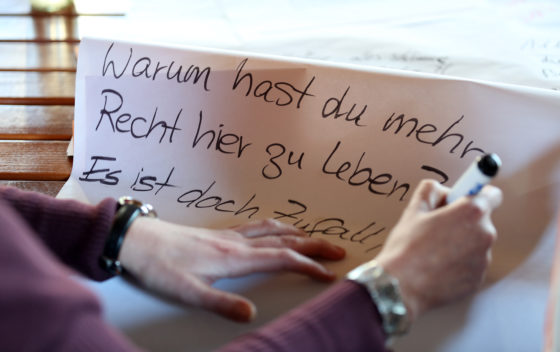 Warum hast du mehr
Recht hier zu leben?
Es ist doch Zufall,